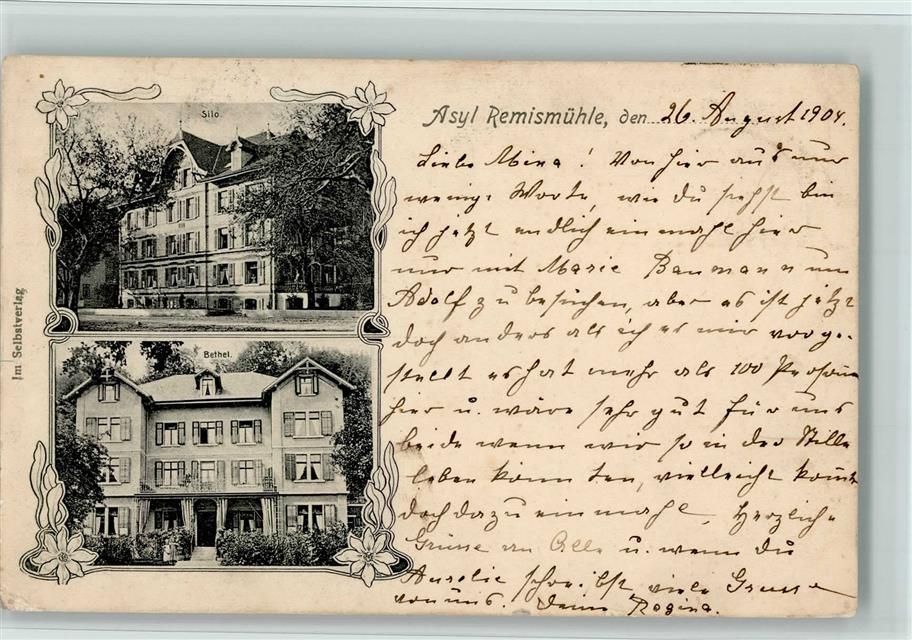 Silo.
Bethel.
Im Selbstverlag
Asyl Remismühle, den 26. August 1904.
Liebe Mina! Von hier aus nur
wenige Worte, wie du siehst bin
ich jetzt endlich ein mahl hier
nur mit Marie Baumann um
Adolf zu besuchen, aber es ist jetzt
doch anders als ich es mir vorge-
stellt es hat mehr als 100 Personen
hier u. wäre sehr gut für uns
beide wenn wir so in der Stille
leben könnten, vielleicht kommt
doch dazu ein mahl, Herzliche
Grüsse an Alle u. wenn du
Aurelie schreibst viele Grüsse
von uns. Deine Regina.